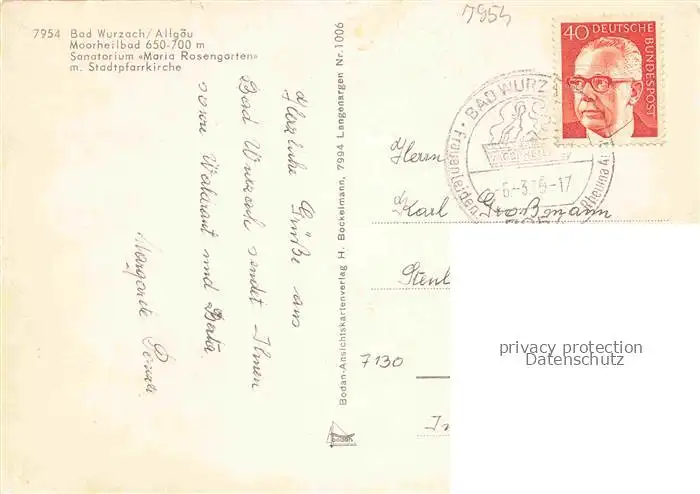 7954 Bad Wurzach / Allgäu
Moorheilbad 650-700 m
Sanatorium «Maria Rosengarten»
m. Stadtpfarrkirche
Herzliche Grüße aus
Bad Wurzach sendet Ihnen
sowie Waltraut und Beate
Margarete
Bodan-Ansichtskartenverlag H. Bockelmann, 7994 Langenargen Nr. 1006
bodan
7954
40 DEUTSCHE BUNDESPOST
BAD WURZ
MOORHEILBAD
Frauenleiden
Rheuma
-3.75-17
Herrn
Karl Großmann
7130
privacy protection
Datenschutz